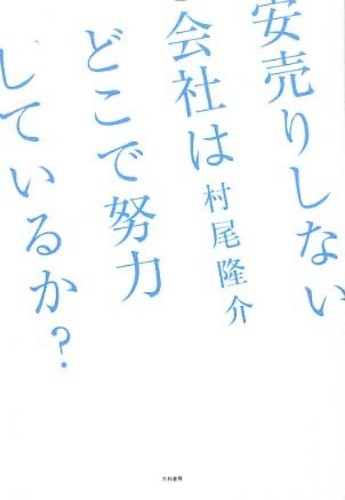 安売りしない
会社は
どこで努力
しているか?
村尾隆介
大和書房